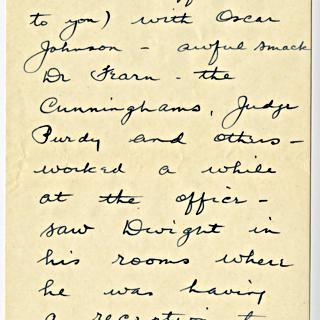 to you) with Oscar
Johnson - awful smack
Dr Fearn - the
Cunninghams, Judge
Purdy and others -
worked a while
at the office -
saw Dwight in
his rooms where
he was having
a reception to